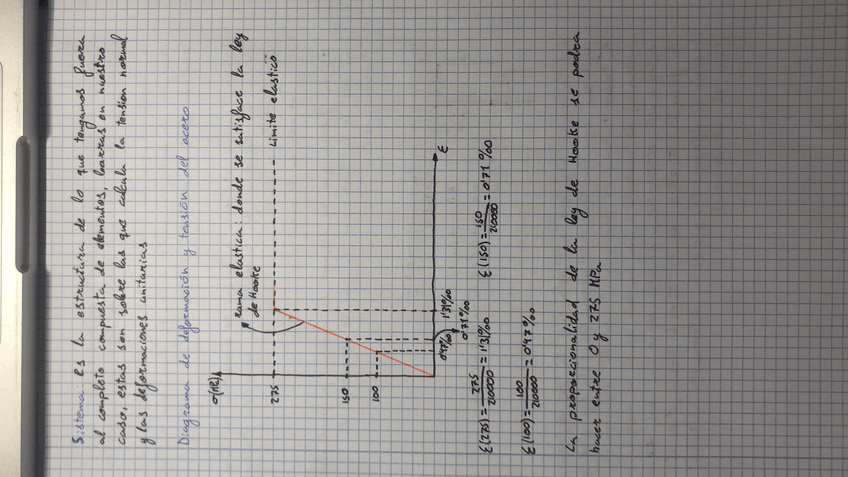 Sistema: es la estructura de lo que tengamos fuera
al completo compuesta de elementos, barras en nuestro
caso, estas son sobre las que calcula la tension normal
y las deformaciones unitarias
Diagrama de deformación y tensión del acero
rama elastica: donde se satisface la ley
de Hooke
275
Limite elastico
150
100
ε
0'47‰
1'31‰
0'71‰
ε(275) = 275/210000 = 1'31‰
ε(150) = 150/210000 = 0'71‰
ε(100) = 100/210000 = 0'47‰
La proporcionalidad de la ley de Hooke se podra
hacer entre 0 y 275 MPa